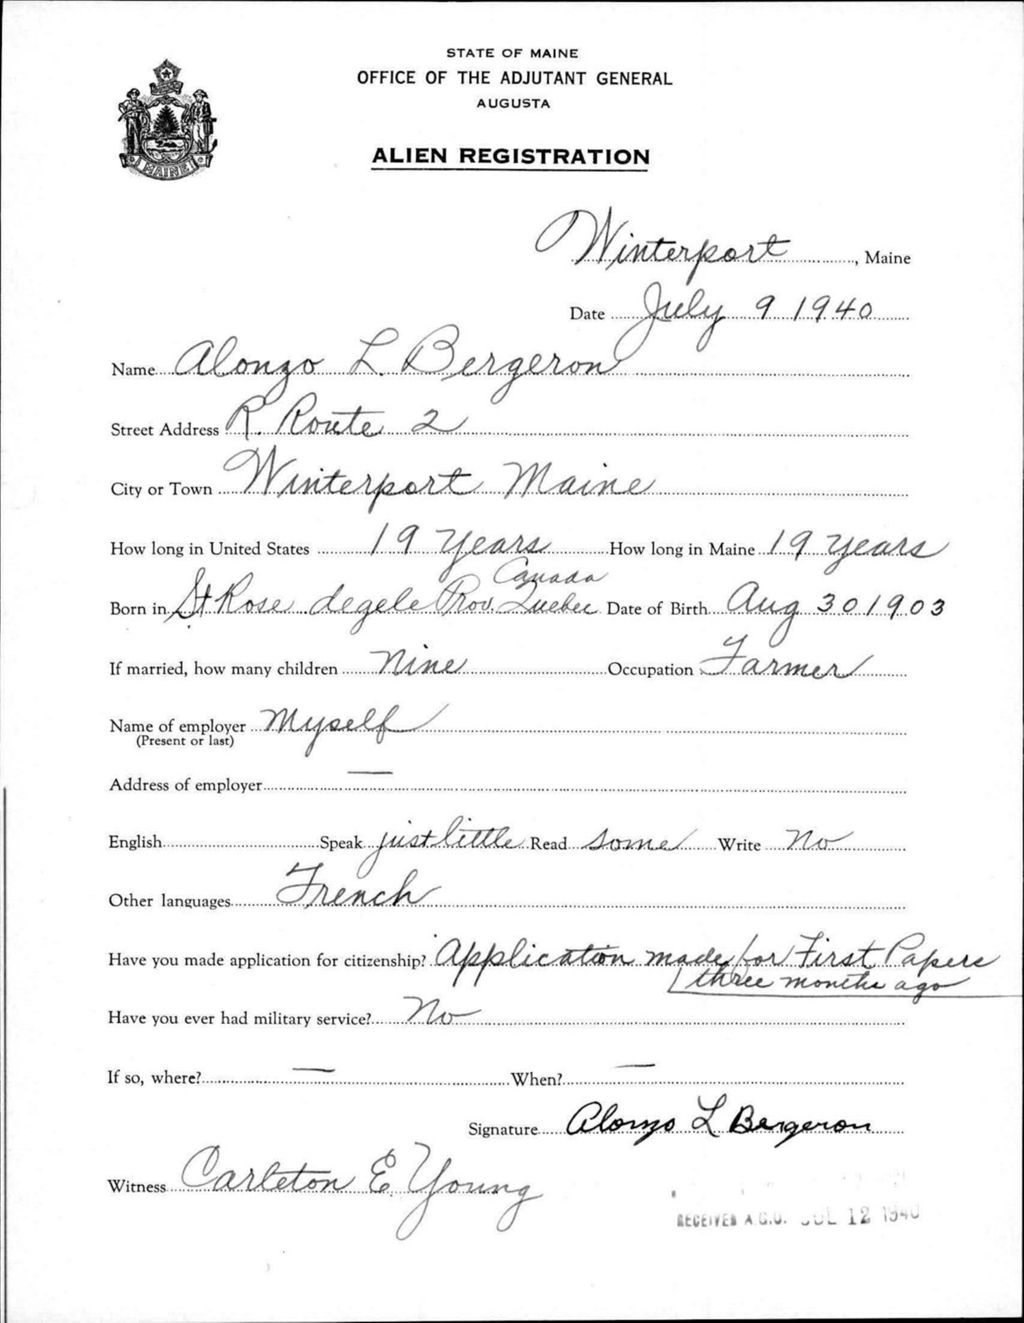 STATE OF MAINE
OFFICE OF THE ADJUTANT GENERAL
AUGUSTA
ALIEN REGISTRATION
MAINE
Winterport, Maine
Date July 9 1940
Name Alonzo L. Bergeron
Street Address R. Route 2
City or Town Winterport Maine
How long in United States 19 Years How long in Maine 19 years
Canada
Born in St Rose degele Prov. Quebec Date of Birth Aug 30 1903
If married, how many children Nine Occupation Farmer
Name of employer Myself
(Present or last)
Address of employer —
English Speak just little Read some Write No
Other languages French
Have you made application for citizenship? Application made for First Papers
three months ago
Have you ever had military service? No
If so, where? — When? —
Signature Alonzo L Bergeron
Witness Carleton E Young
RECEIVED A.G.O. JUL 12 1940